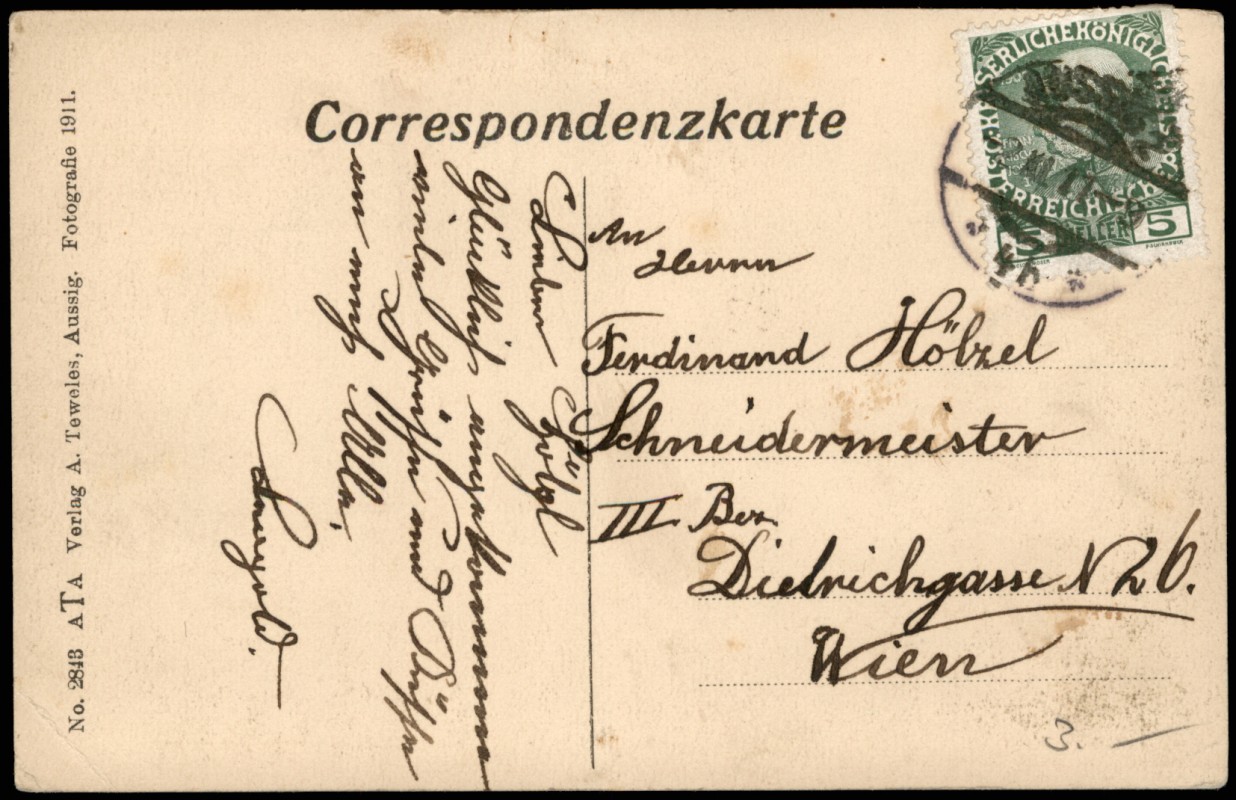 Correspondenzkarte
KAISERLICHEKÖNIGLICHE
ÖSTERREICHISCHE POST
5 HELLER 5
An
Herrn
Ferdinand Hölzel
Schneidermeister
III Bez.
Dietrichgasse N 26.
Wien
Lieber
Glücklich angekommen
viele Grüße und Küsse
an euch Alle.
Leopold.
No. 2843 ATA Verlag A. Teweles, Aussig. Fotografie 1911.
3. —